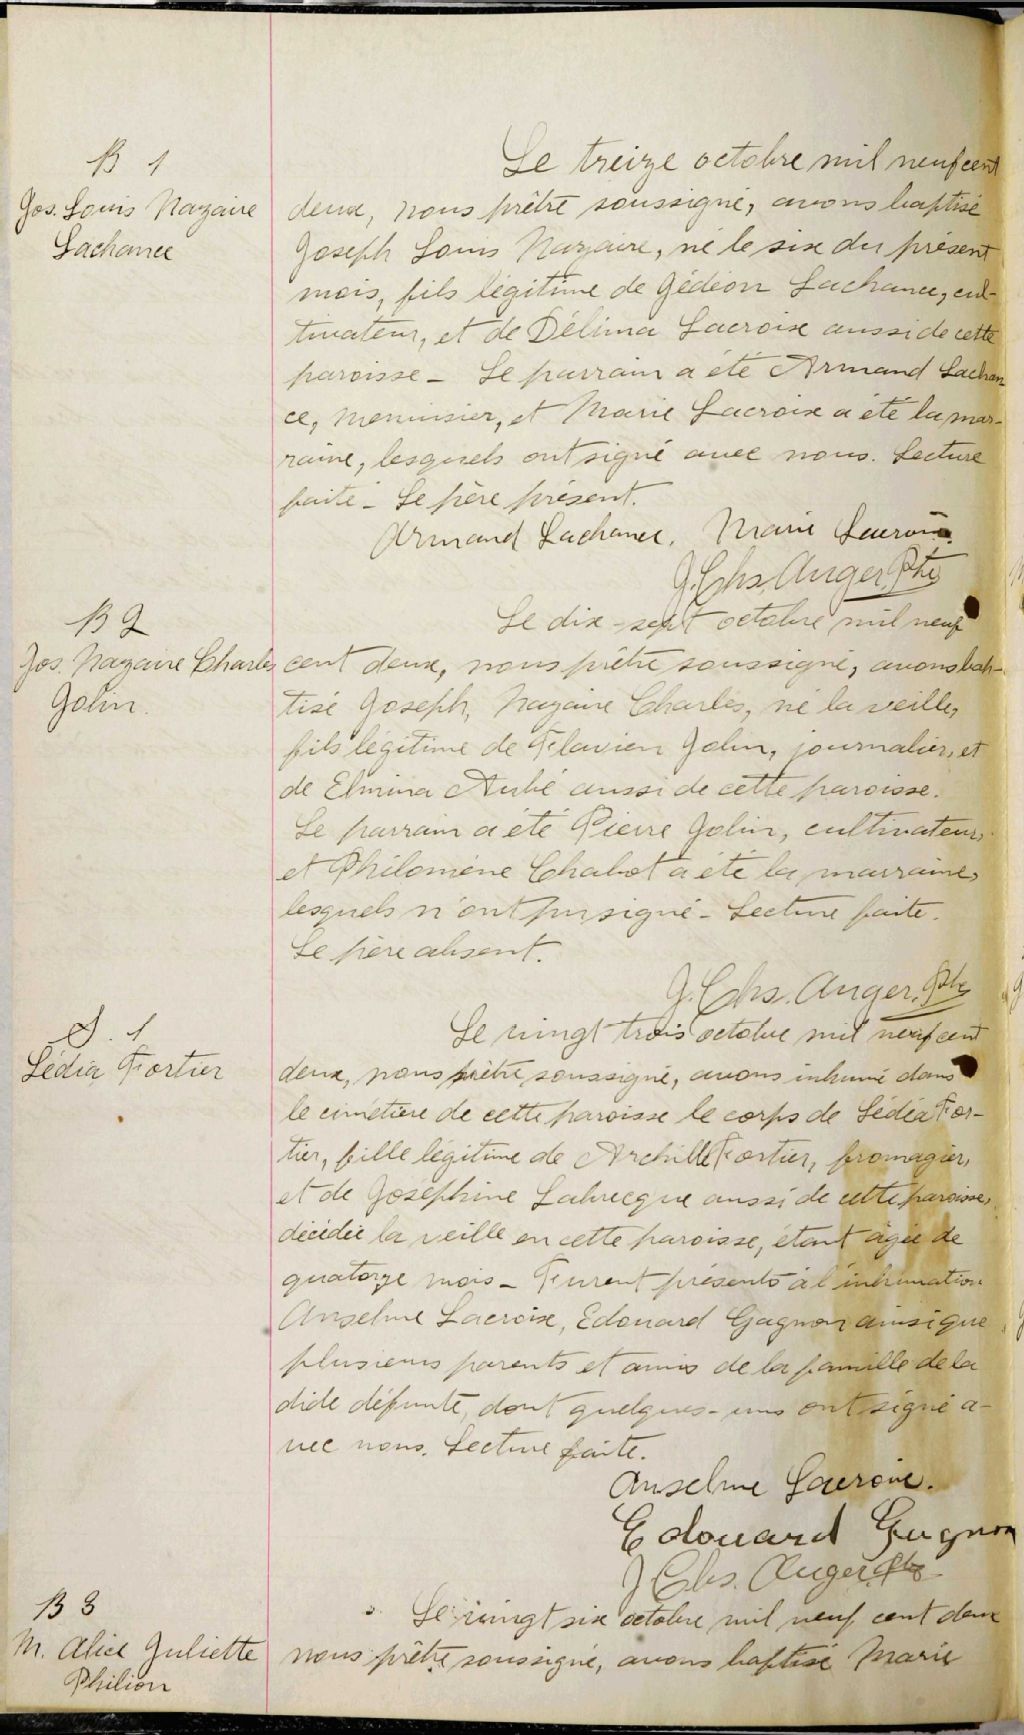 B 1
Jos. Louis Nazaire
Lachance
Le treize octobre mil neuf cent
deux, nous prêtre soussigné, avons baptisé
Joseph Louis Nazaire, né le six du présent
mois, fils légitime de Gédéon Lachance, cul-
tivateur, et de Délima Lacroix aussi de cette
paroisse - Le parrain a été Armand Lachan
ce, menuisier, et Marie Lacroix a été la mar-
raine, lesquels ont signé avec nous. Lecture
faite - Le père présent.
Armand Lachance. Marie Lacroix.
J. Chs. Auger, Ptre
B 2
Jos. Nazaire Charles
Golin.
Le dix-sept octobre mil neuf
cent deux, nous prêtre soussigné, avons bap-
tisé Joseph, Nazaire Charles, né la veille,
fils légitime de Flavien Golin, journalier, et
de Elmina Aubé aussi de cette paroisse.
Le parrain a été Pierre Golin, cultivateur,
et Philomène Chabot a été la marraine,
lesquels n'ont pu signé - Lecture faite.
Le père absent.
J. Chs. Auger, Ptre
S. 1
Lédia Fortier
Le vingt trois octobre mil neuf cent
deux, nous prêtre soussigné, avons inhumé dans
le cimétière de cette paroisse le corps de Lédéa For-
tier, fille légitime de Archille Fortier, fromagier,
et de Joséphine Labrecque aussi de cette paroisse,
décédée la veille en cette paroisse, étant âgée de
quatorze mois - Furent présents à l'inhumation
Anselme Lacroix, Edouard Gagnon ainsi que
plusieurs parents et amis de la famille de la
dide défunte, dont quelques-uns ont signé a-
vec nous. Lecture faite.
Anselme Lacroix.
Edouard Gagnon
J Chs. Auger, Ptre
B 3
M. Alice Juliette
Philion
Le vingt six octobre mil neuf cent deux
nous prêtre soussigné, avons baptisé Marie